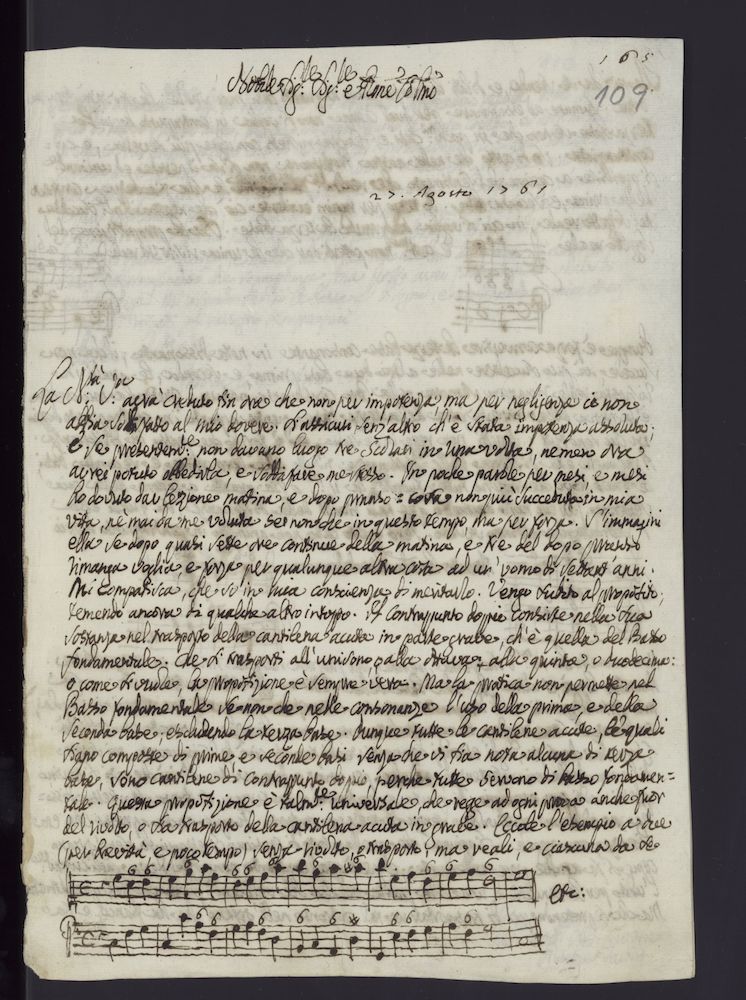 165
109
Nobile Sig.r Sig.r e Pne
27. Agosto 1761
La N.tà V.a avrà creduto fin ora che non per impotenza, ma per negligenza io non
abbia sodisfatto al mio dovere. L'assicuro senz'altro ch'è stata impotenza assoluta;
e se pretendenti non davano luogo tre Scolari in una volta, nemen ora
avrei potuto obbedirla, e sodisfare me stesso. In poche parole per mesi, e mesi
ho dovuto dar lezione matina, e dopo pranso: cosa non più succeduta in mia
vita, nè mai da me voluta se non che in questo tempo, ma per forza. S'immagini
ella se dopo quasi sette ore continue della matina, e tre del dopo pranso
rimanga voglia, e forza per qualunque altra cosa ad un'uomo di settant'anni.
Mi compatisca, che so in mia conscienza di meritarlo. Vengo subito al proposito,
temendo ancora di qualche altro intoppo. Il Contrappunto doppio consiste nella sua
sostanza nel trasporto della cantilena acuta in parte grave, ch'è quella del Basso
fondamentale. Che si trasporti all'unisono, alla ottava, alla quinta, o duodecima:
o come si vuole, la proposizione è sempre vera. Ma la pratica non permette nel
Basso fondamentale se non che nelle consonanze l'uso della prima, e della
seconda base, escludendo la terza base. Dunque tutte le cantilene acute, le quali
siano composte di prime, e seconde basi senza che vi sia nota alcuna di terza
base, sono cantilene di Contrappunto doppio, perche tutte servono di Basso fondamen=
tale. Questa proposizione è talm.te universale, che rege ad ogni prova anche fuor
del rivolto, o sia trasporto della cantilena acuta in grave. Eccole l'esempio a due
(per brevità, e poco tempo) senza rivolto, o trasporto, ma reali, e ciascuna da se
6 6 6 6 6 6 6 6 6 6 6 etc:
6 6 6 6 6 6 6 6 6